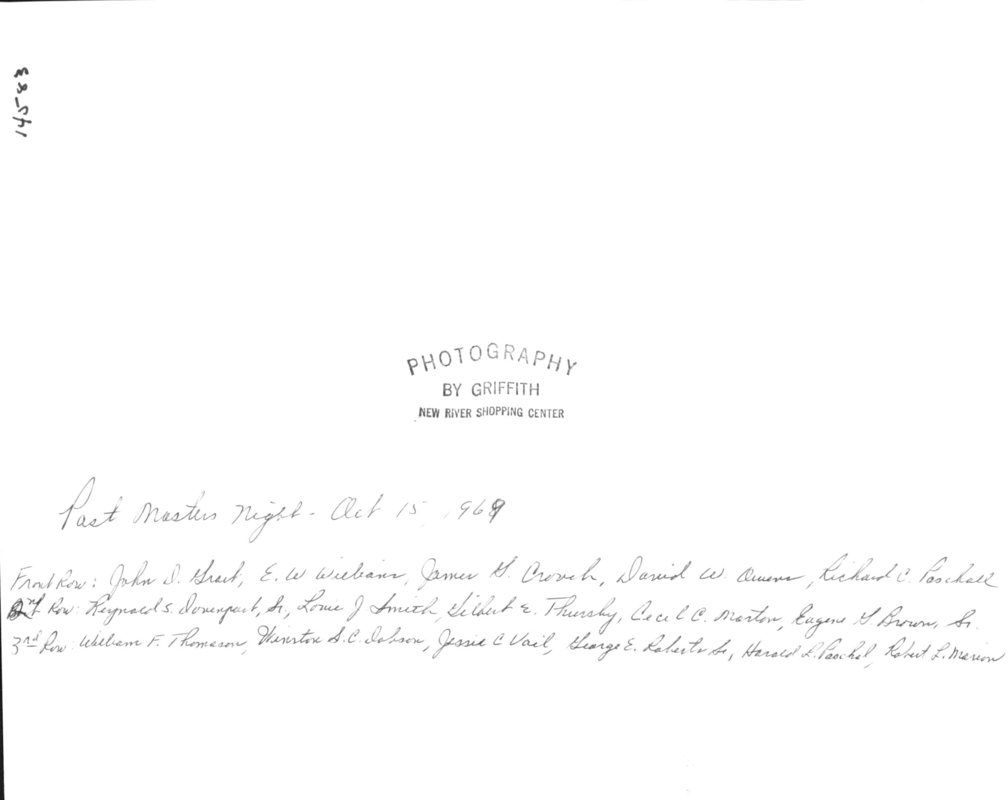 145-83
PHOTOGRAPHY
BY GRIFFITH
NEW RIVER SHOPPING CENTER
Past Masters Night - Oct 15, 1969
Front Row: John D. Grant, E. W Williams, James G. Crouch, David W. Owens, Richard C. Paschall
2nd Row: Reynold S. Davenport, Sr., Louie J Smith, Gilbert E. Thursby, Cecil C. Morton, Eugene G Brown, Sr.
3rd Row. William F. Thomason, Winston S. C. Dobson, Jessie C Vail, George E. Roberts Sr., Harold L. Paschal, Robert L. Marion